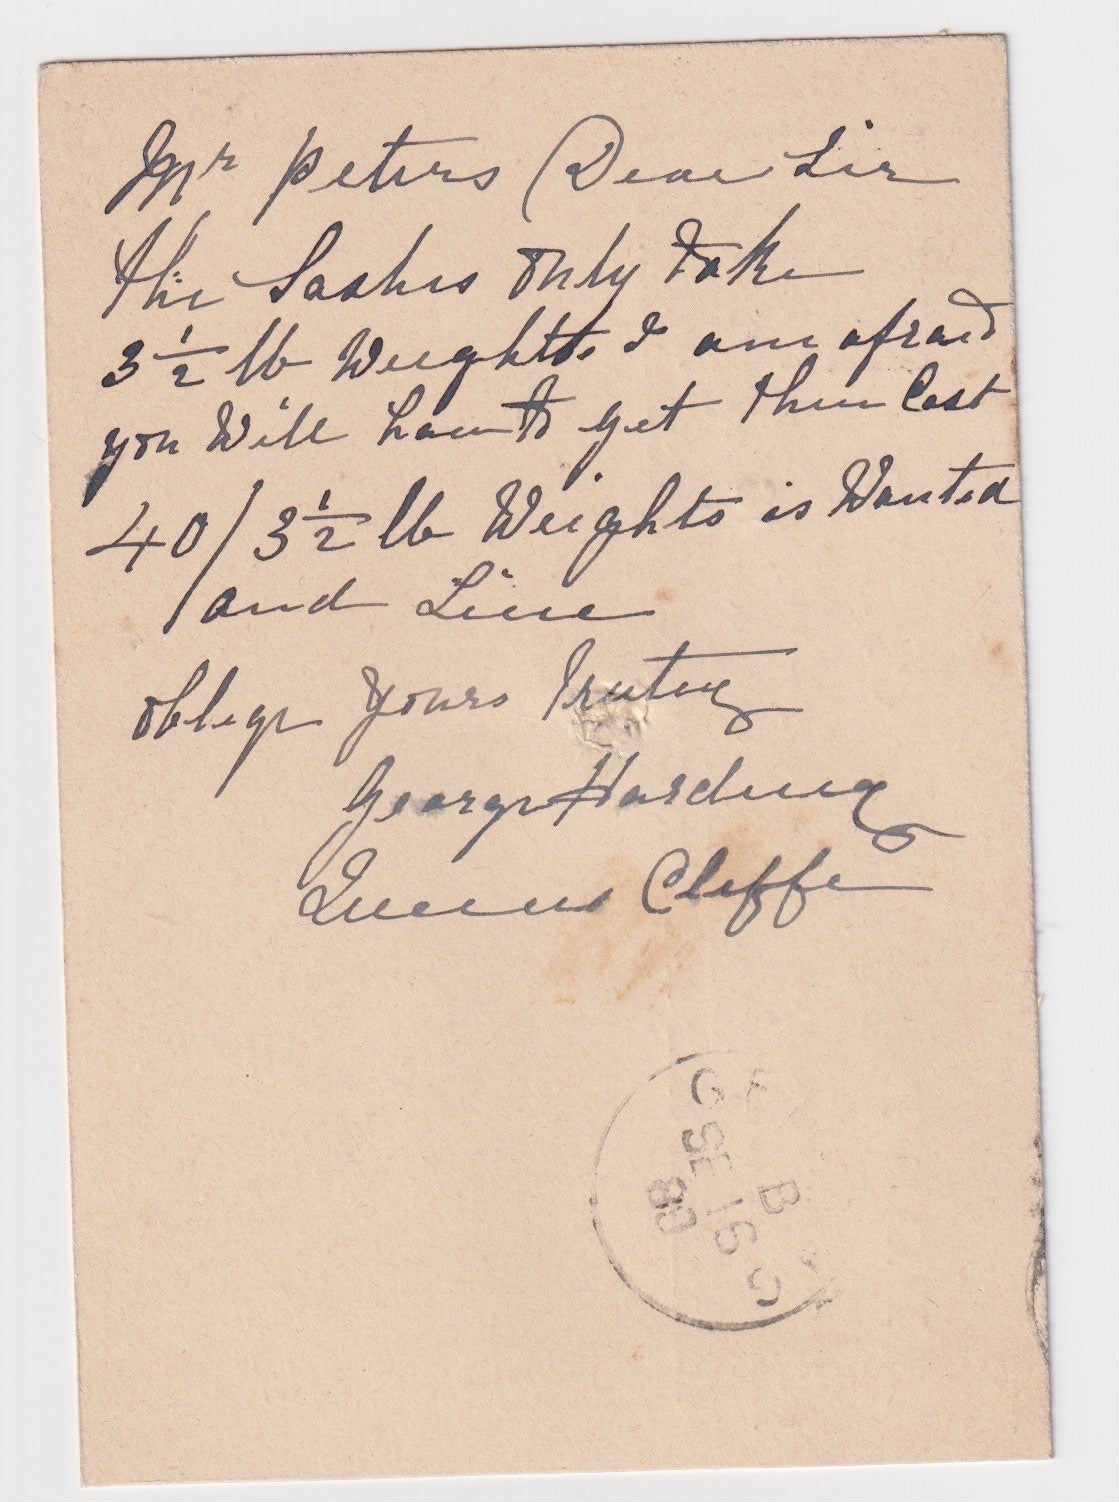 Mr Peters Dear Sir
the Sashes only take
3 1/2 lb Weights I am afraid
you Will have to get them Cast
40/3 1/2 lb Weights is Wanted
and Line
oblige Yours Truley
George Harding
Queens Cliffe
G
B
SE 16
89
G